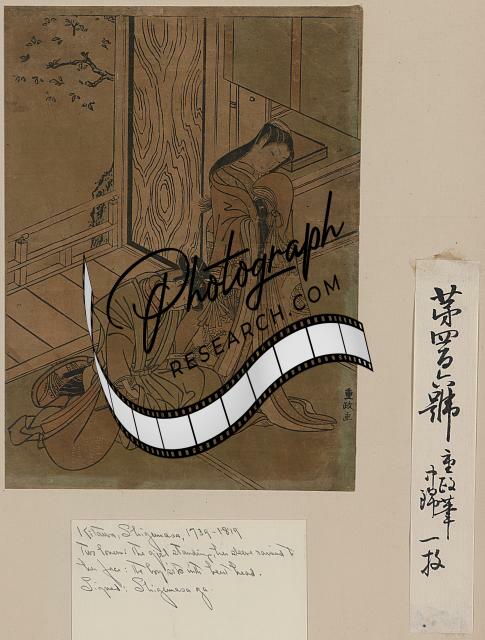 Photograph
RESEARCH.COM
重政画
第四百六號
重政筆
一枚
Kitawo, Shigemasa, 1739-1819
Two lovers: The girl standing, her sleeve raised to
her face: the boy sits with bent head.
Signed: Shigemasa ga.